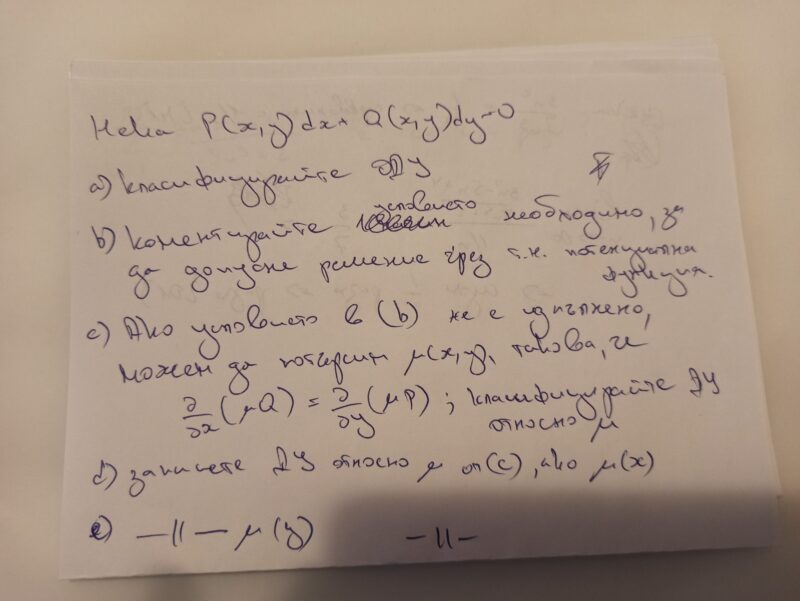 Нека P(x,y)dx + Q(x,y)dy = 0
а) класифицирайте ОДУ
b) коментирайте условието необходимо, за
да допусне решение чрез т.н. потенциална
функция.
c) Ако условието в (b) не е изпълнено,
можем да потърсим μ(x,y), такова, че
∂/∂x (μQ) = ∂/∂y (μP) ; класифицирайте ДУ
относно μ
d) запишете ДУ относно μ от (c), ако μ(x)
e) —||— μ(y) —||—